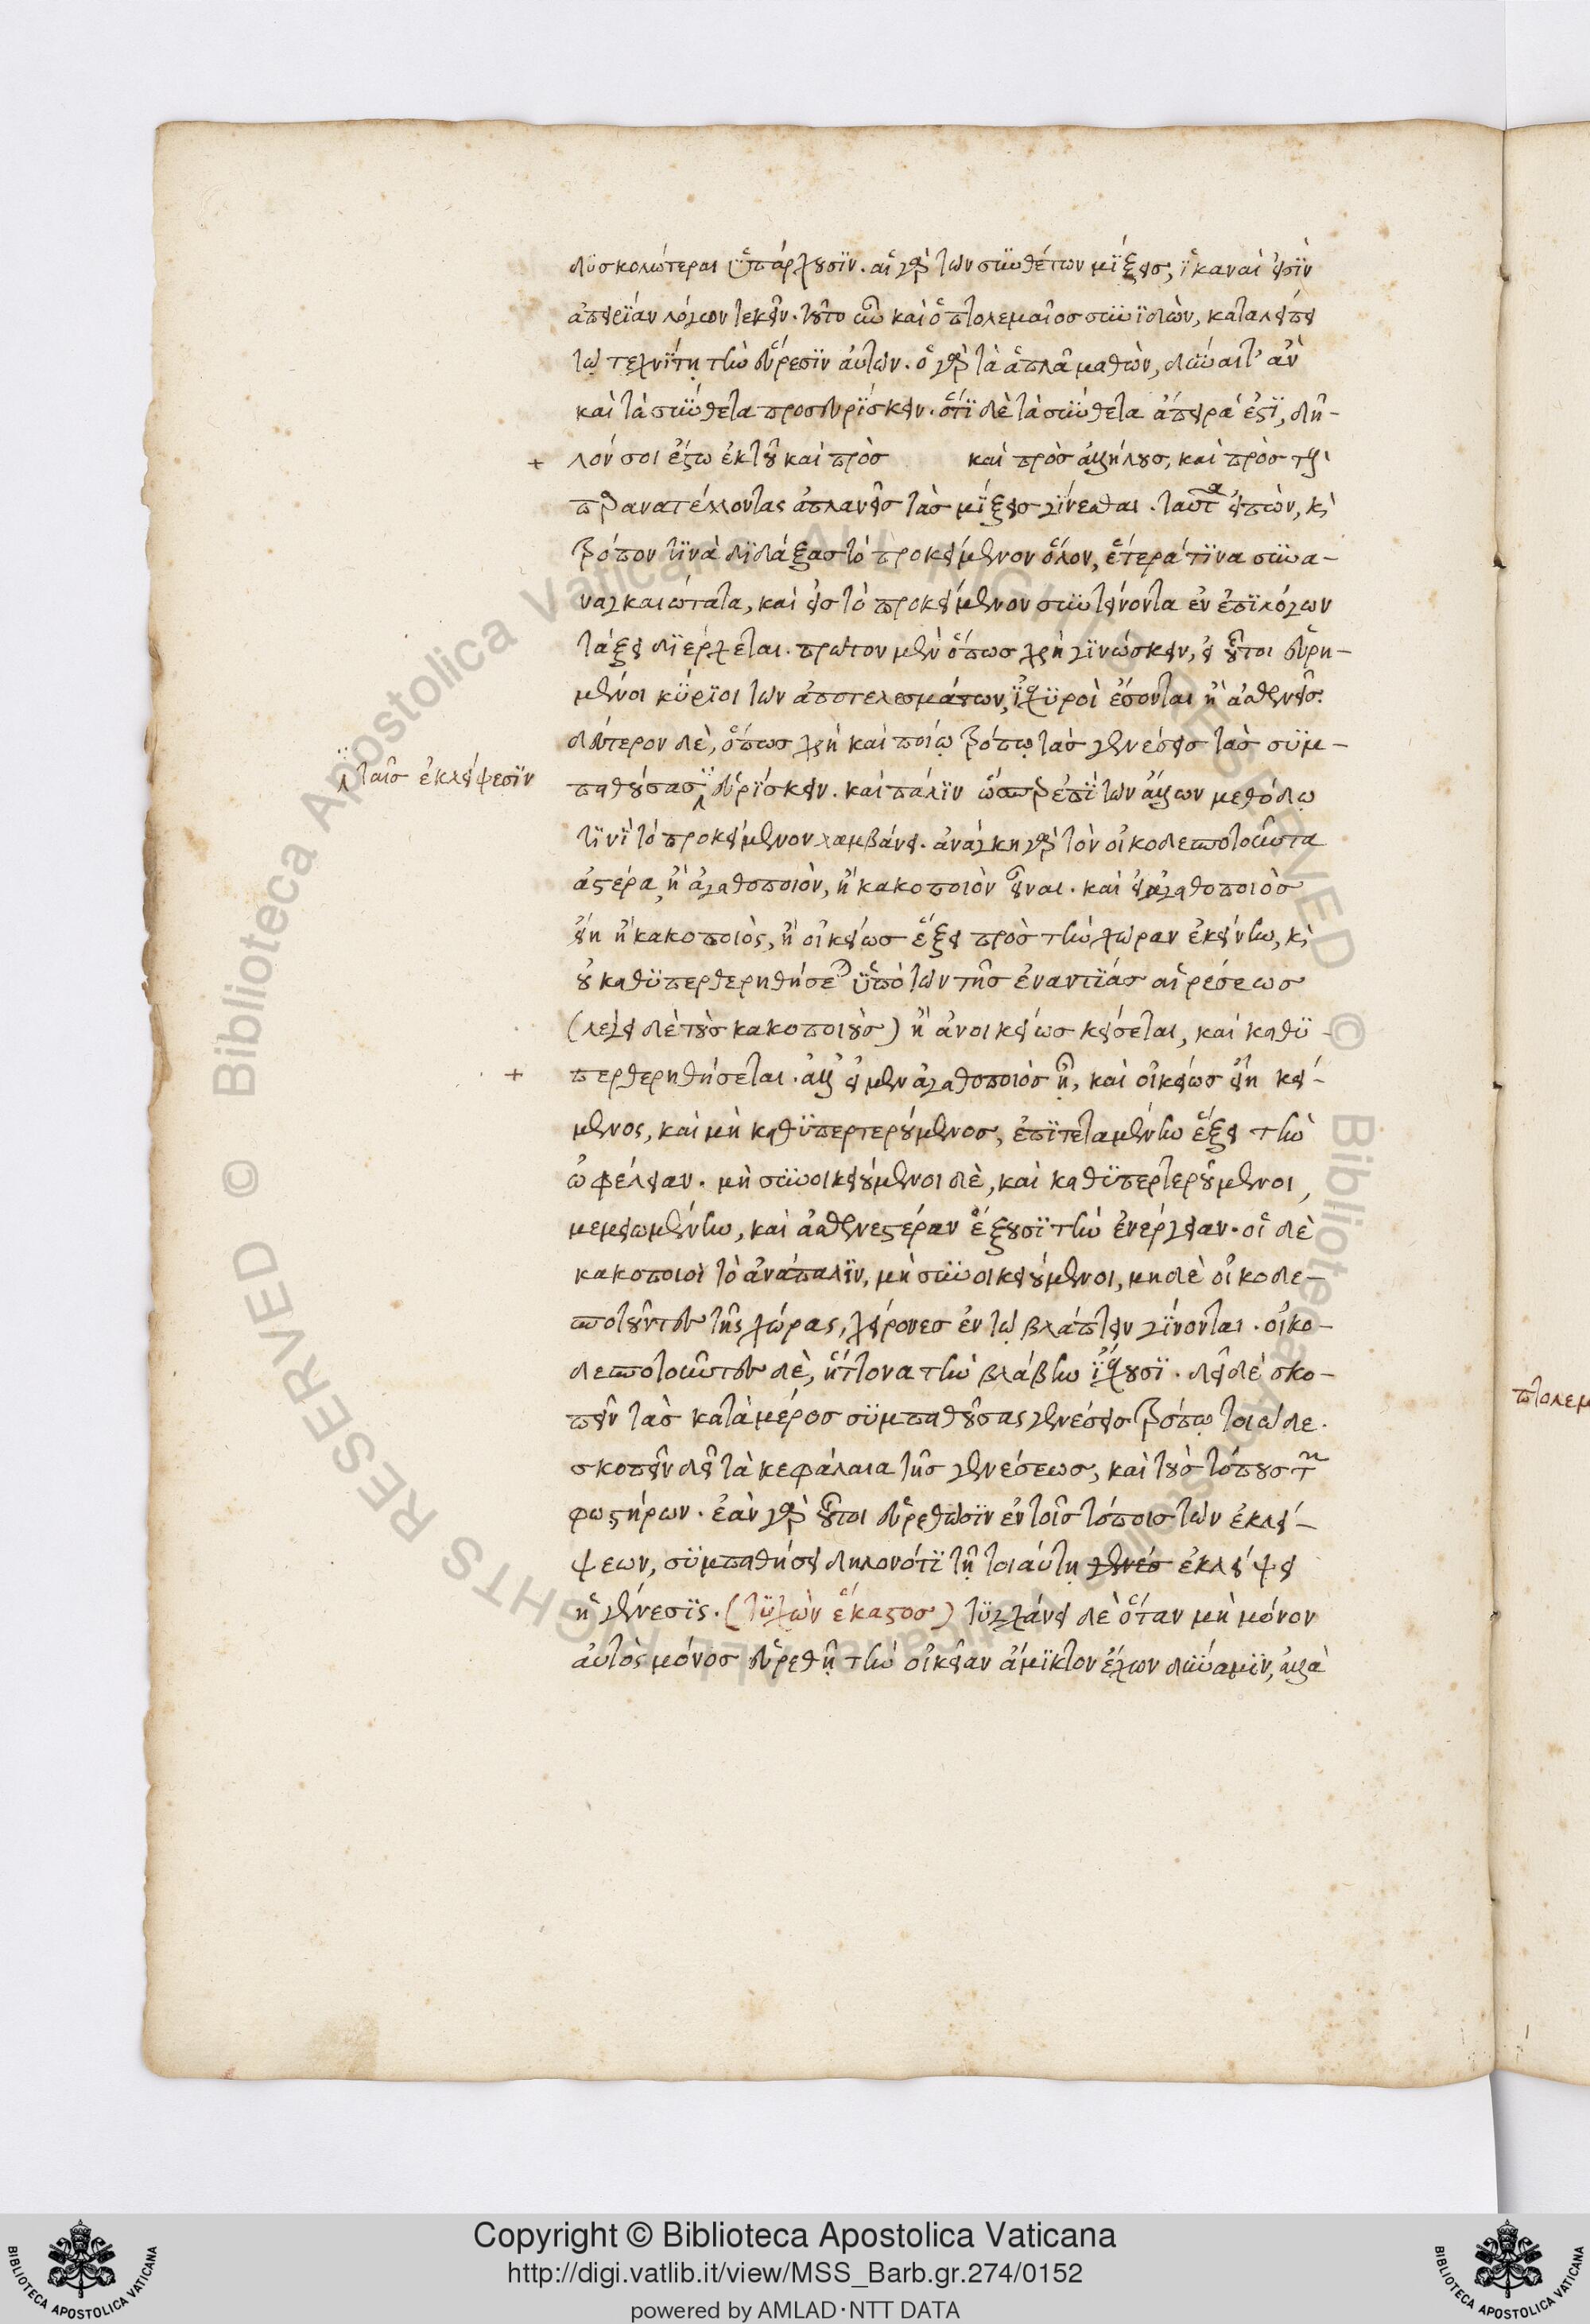 δυσκολώτεραι ὑπάρχουσιν. αἱ γὰρ τῶν συνθέτων μίξεις, ἱκαναὶ εἰσὶν
ἀπειρίαν λόγων τεκεῖν. τοῦτο οὖν καὶ ὁ πτολεμαῖος συνιδὼν, καταλείπει
τῷ τεχνίτῃ τὴν εὕρεσιν αὐτῶν. ὁ γὰρ τὰ ἁπλᾶ μαθὼν, δύναιτ' ἂν
καὶ τὰ σύνθετα προσευρίσκειν. ὅτι δὲ τὰ σύνθετα ἄπειρά ἐστι, δῆ-
+ λόν σοι ἔστω ἐκ τοῦ καὶ πρὸς καὶ πρὸς ἀλλήλους, καὶ πρὸς τοὺς
παρανατέλλοντας ἀπλανεῖς τὰς μίξεις γίνεσθαι. ταῦτα εἰπὼν, καὶ
τρόπον τινὰ διδάξας τὸ προκείμενον ὅλον, ἕτερά τινα συνα-
ναγκαιώτατα, καὶ εἰς τὸ προκείμενον συντείνοντα ἐν ἐπιλόγων
τάξει διέρχεται. πρῶτον μὲν ὅπως χρὴ γινώσκειν, εἰ οὗτοι εὑρη-
μένοι κύριοι τῶν ἀποτελεσμάτων, ἰσχυροὶ ἔσονται ἢ ἀσθενεῖς.
δεύτερον δὲ, ὅπως χρὴ καὶ ποίῳ τρόπῳ τὰς γενέσεις τὰς συμ-
παθούσας εὑρίσκειν. καὶ πάλιν ὥσπερ ἐπὶ τῶν ἄλλων μεθόδῳ
ταῖς ἐκλείψεσιν
τινὶ τὸ προκείμενον λαμβάνει. ἀνάγκη γὰρ τὸν οἰκοδεσποτοῦντα
ἀστέρα, ἢ ἀγαθοποιὸν, ἢ κακοποιὸν εἶναι. καὶ εἰ ἀγαθοποιὸς
εἴη ἢ κακοποιὸς, ἢ οἰκείως ἕξει πρὸς τὴν χώραν ἐκείνην, καὶ
οὐ καθυπερθερηθήσεται ὑπὸ τῶν τῆς ἐναντίας αἱρέσεως
(λέγει δὲ τοὺς κακοποιοὺς) ἢ ἀνοικείως κείσεται, καὶ καθυ-
+ περθερηθήσεται. ἀλλ' εἰ μὲν ἀγαθοποιὸς ᾖ, καὶ οἰκείως εἴη κεί-
μενος, καὶ μὴ καθυπερτερούμενος, ἐπιτεταμένην ἕξει τὴν
ὠφέλειαν. μὴ συνοικειούμενοι δὲ, καὶ καθυπερτερούμενοι,
μεμειωμένην, καὶ ἀσθενεστέραν ἕξουσι τὴν ἐνέργειαν. οἱ δὲ
κακοποιοὶ τὸ ἀνάπαλιν, μὴ συνοικειούμενοι, μηδὲ οἰκοδε-
σποτοῦντες τῆς χώρας, χείρονες ἐν τῷ βλάπτειν γίνονται. οἰκο-
δεσποτοῦντες δὲ, ἥττονα τὴν βλάβην ἴσχουσι. δεῖ δὲ σκο-
πεῖν τὰς κατὰ μέρος συμπαθούσας γενέσεις τρόπῳ τοιῷδε.
σκοπεῖν δεῖ τὰ κεφάλαια τῆς γενέσεως, καὶ τοὺς τόπους τῶν
φωστήρων. ἐὰν γὰρ οὗτοι εὑρεθῶσιν ἐν τοῖς τόποις τῶν ἐκλεί-
ψεων, συμπαθήσει δηλονότι τῇ τοιαύτῃ γενέσ ἐκλείψει
ἡ γένεσις. (τυχὼν ἕκαστος) τυγχάνει δὲ ὅταν μὴ μόνον
αὐτὸς μόνος εὑρεθῇ τὴν οἰκείαν ἄμικτον ἔχων δύναμιν, ἀλλὰ
Copyright © Biblioteca Apostolica Vaticana
http://digi.vatlib.it/view/MSS_Barb.gr.274/0152
powered by AMLAD·NTT DATA